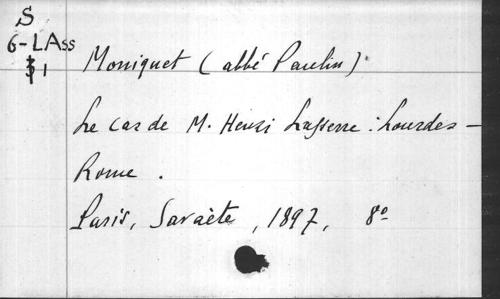 S
6-LAss
31
Moniquet (abbé Paulin).
Le cas de M. Henri Lasserre : Lourdes –
Rome.
Paris, Savaète, 1897, 8º